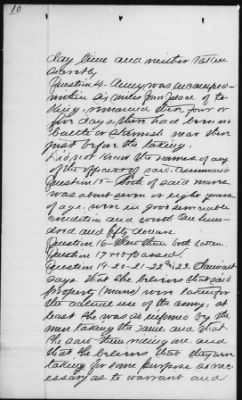 10
day time and neither taken
secretly
Question 14- Army was encamped
within six miles from place of ta-
king, remained there four or
five days, there had been no
battle or skirmish near there
just before the taking.
Did not know the names of any
of the officers of said command
Question 15- Said mare
was about seven or eight years
of age, was in good serviceable
condition and worth one hun-
dred and fifty dollars.
Question 16- Saw them both taken
Question 17 not passed.
Question 19-20-21-22 & 23. Claimant
says that she believes that said
property (mare) was taken for
the actual use of the army, at
least she was so informed by the
men taking the same, and that
the said them and
that she believes, that they were
taking for some purpose so nec-
essary as to warrant and